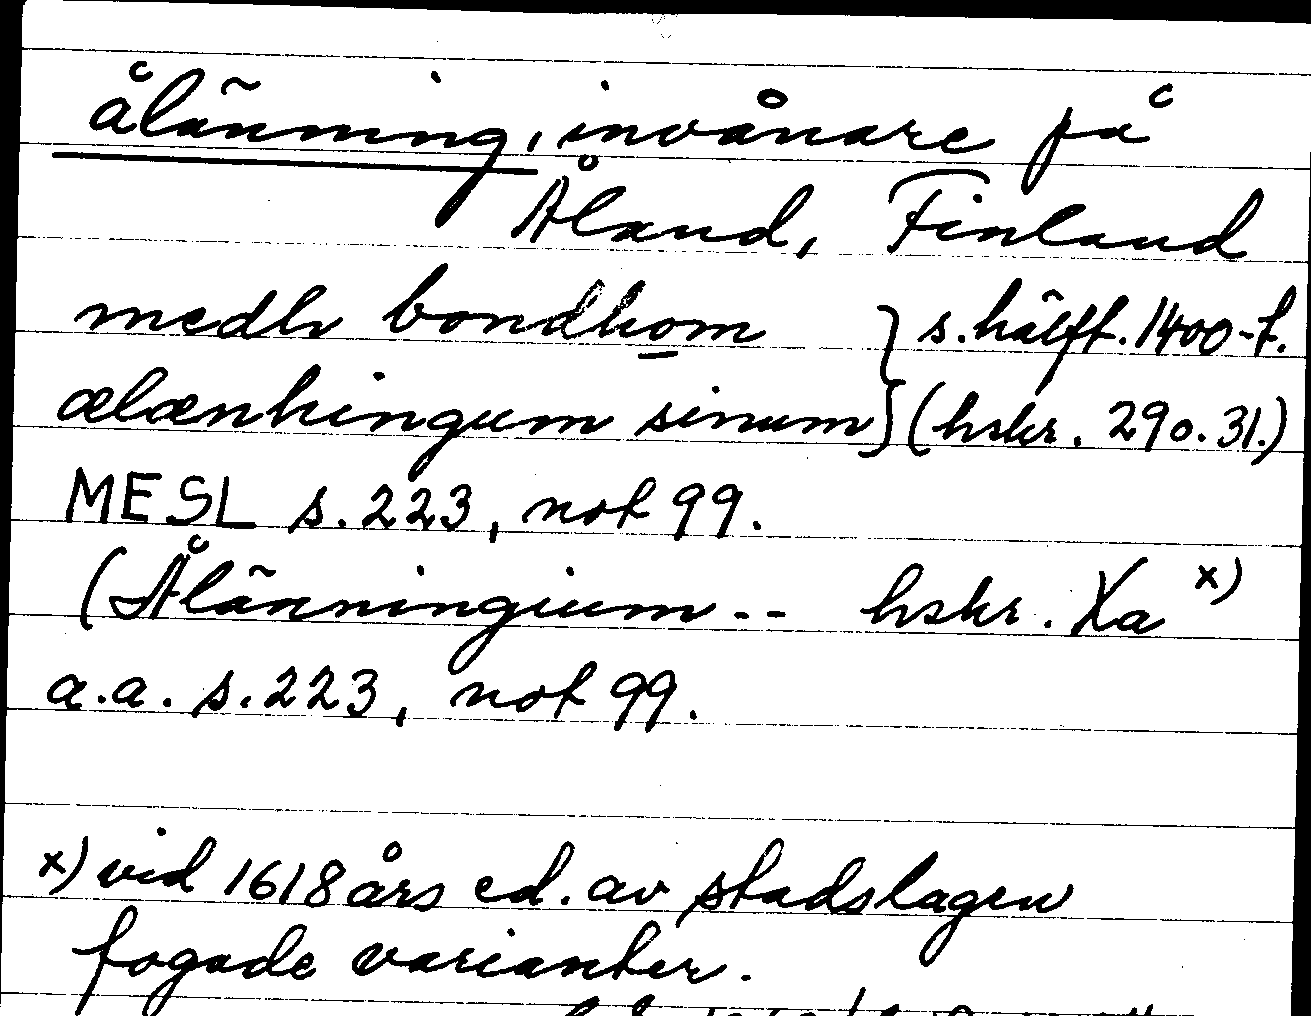 ålänning, invånare på
Åland, Finland
medh bondhom } s. hälft. 1400-t.
ælænhingum sinum } (hskr. 290.31.)
MESL s. 223, not 99.
(Ålänningium -- hskr. Xa x)
a.a. s. 223, not 99.
x) vid 1618 års ed. av stadslagen
fogade varianter.